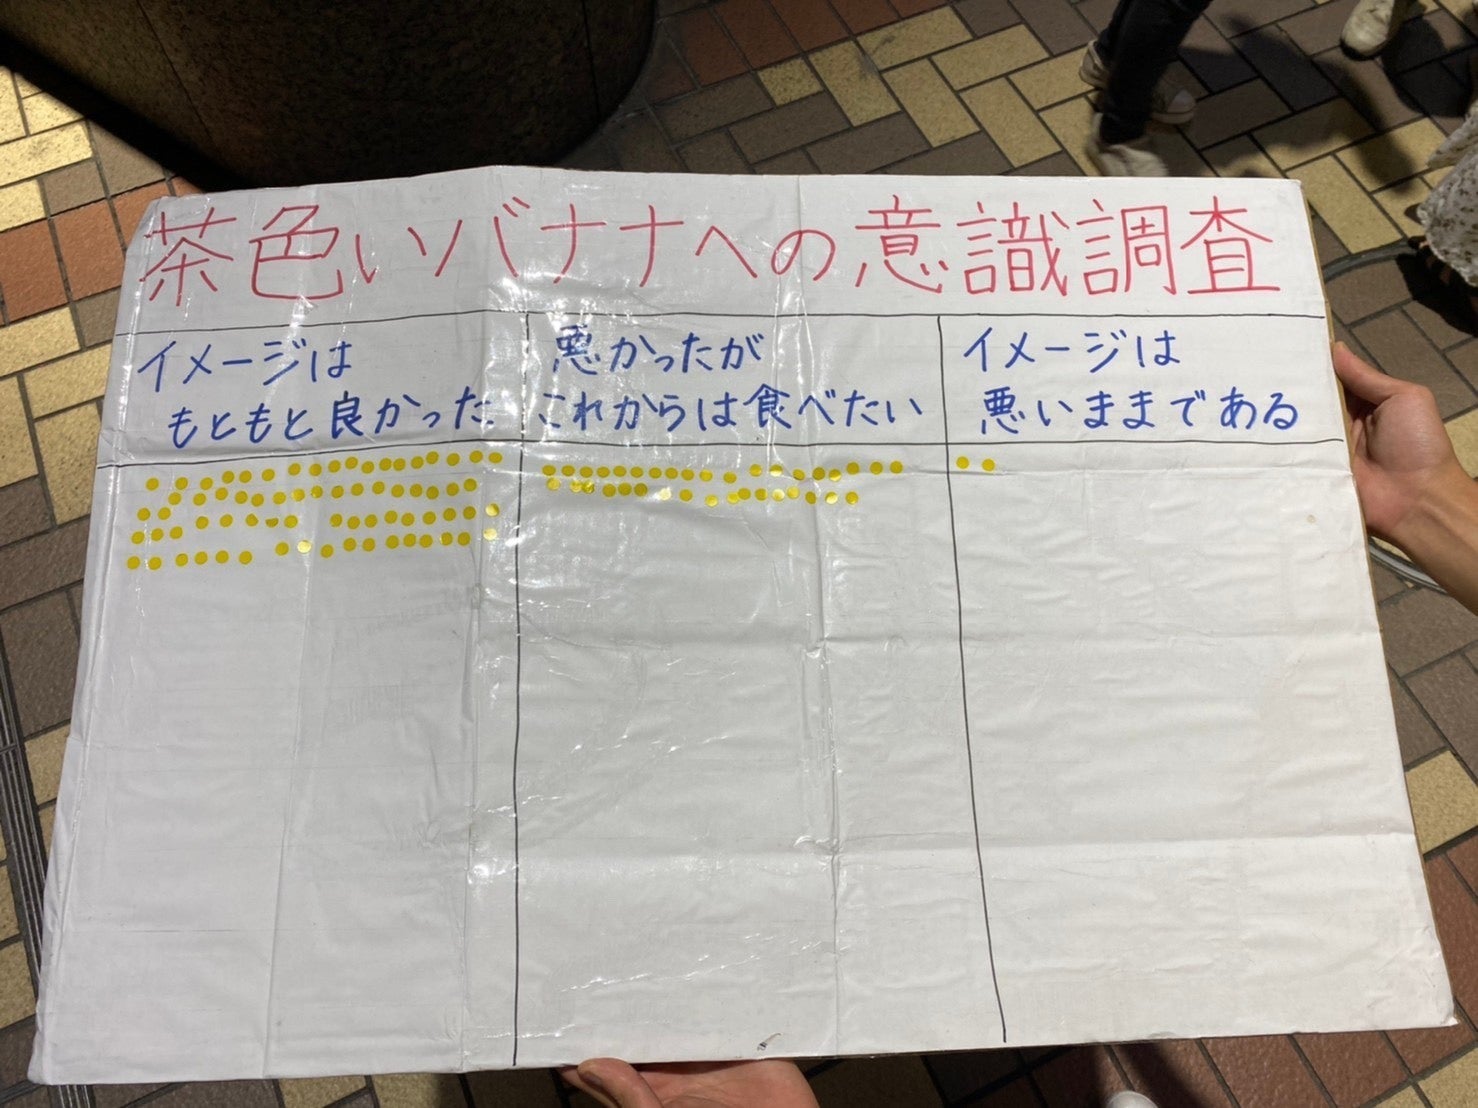 茶色いバナナへの意識調査
イメージは
もともと良かった
悪かったが
これからは食べたい
イメージは
悪いままである